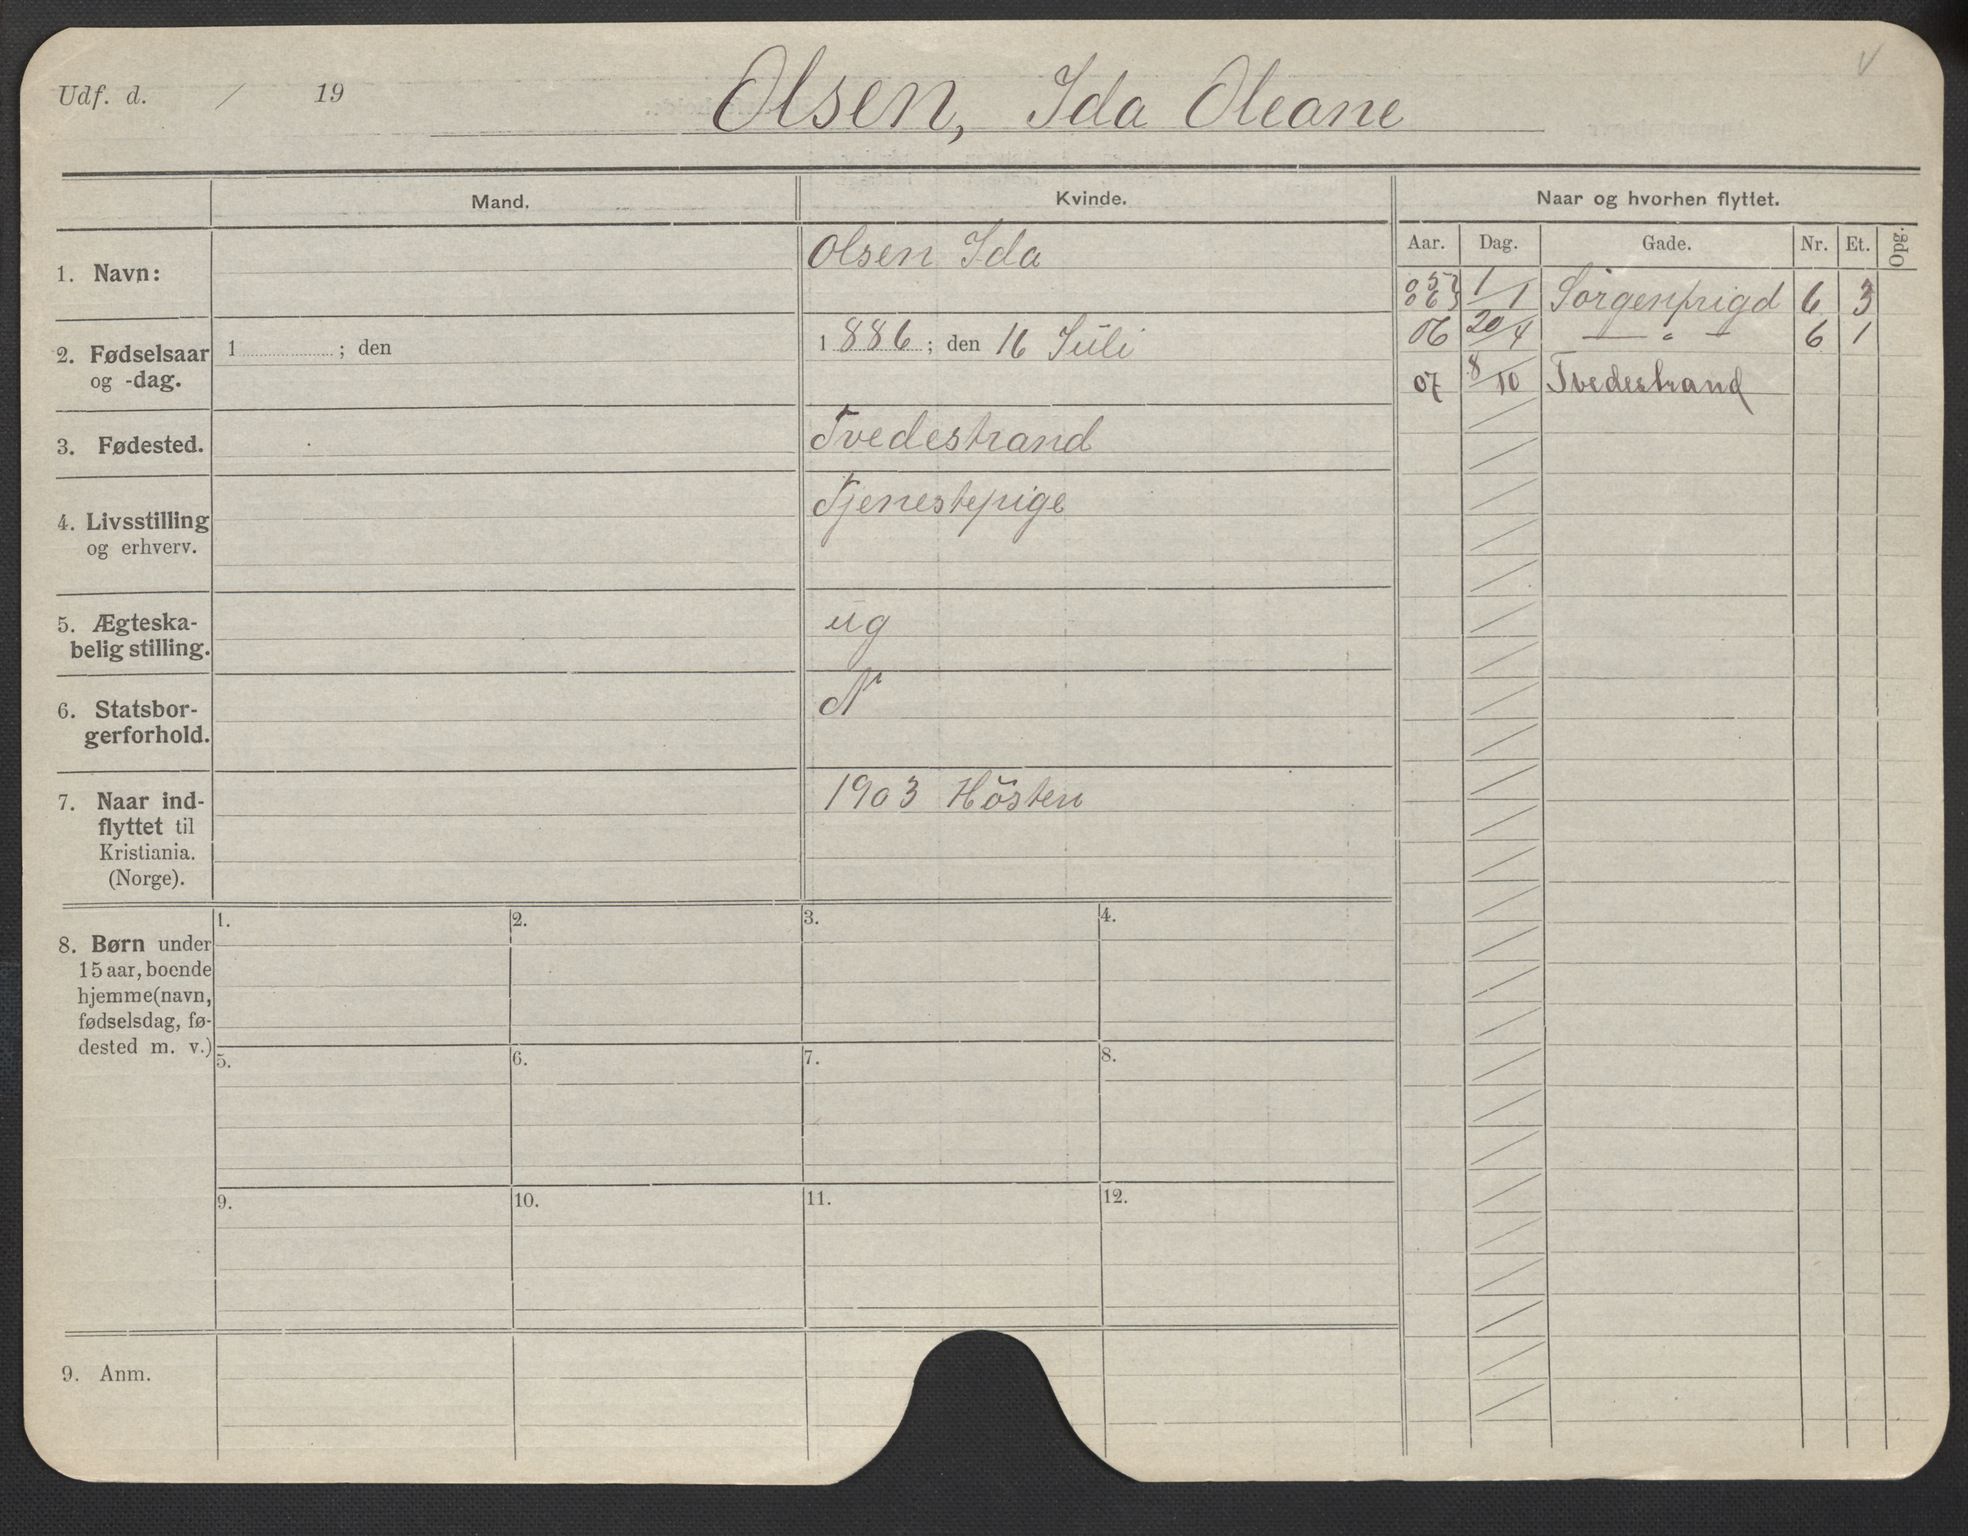 Udf. d. / 19
Olsen, Ida Oleane
Mand.
Kvinde.
Naar og hvorhen flyttet.
Aar. Dag. Gade. Nr. Et. Opg.
1. Navn:
Olsen Ida
1/1 Sorgenfrigd 6 3
06 20/4 — " — 6 1
07 8/10 Tvedestrand
2. Fødselsaar
og -dag.
1 ; den
1886; den 16 Juli
3. Fødested.
Tvedestrand
4. Livsstilling
og erhverv.
Tjenestepige
5. Ægteska-
belig stilling.
ug
6. Statsbor-
gerforhold.
N
7. Naar ind-
flyttet til
Kristiania.
(Norge).
1903 Hösten
8. Børn under
15 aar, boende
hjemme (navn,
fødselsdag, fø-
dested m. v.)
1. 2. 3. 4.
5. 6. 7. 8.
9. 10. 11. 12.
9. Anm.